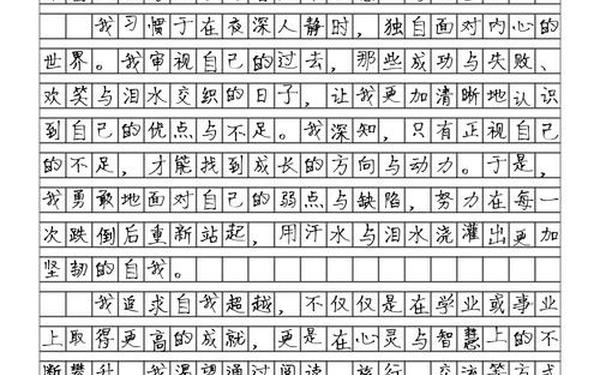 我习惯于在夜深人静时，独自面对内心的
世界。我审视自己的过去，那些成功与失败、
欢笑与泪水交织的日子，让我更加清晰地认识
到自己的优点与不足。我深知，只有正视自己
的不足，才能找到成长的方向与动力。于是，
我勇敢地面对自己的弱点与缺陷，努力在每一
次跌倒后重新站起，用汗水与泪水浇灌出更加
坚韧的自我。
我追求自我超越，不仅仅是在学业或事业
上取得更高的成就，更是在心灵与智慧上的不
断攀升。我渴望通过阅读、旅行、交流等方式